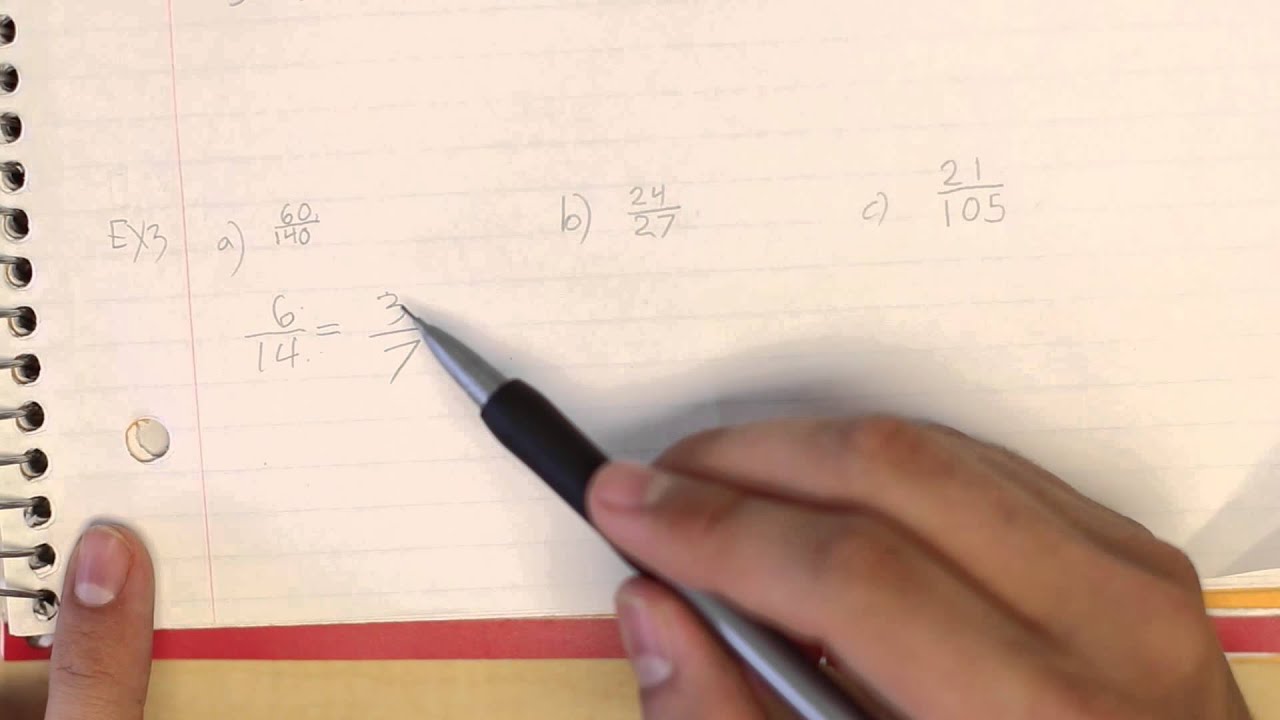 EX3 a) 60/140 b) 24/27 c) 21/105
6/14 = 3/7